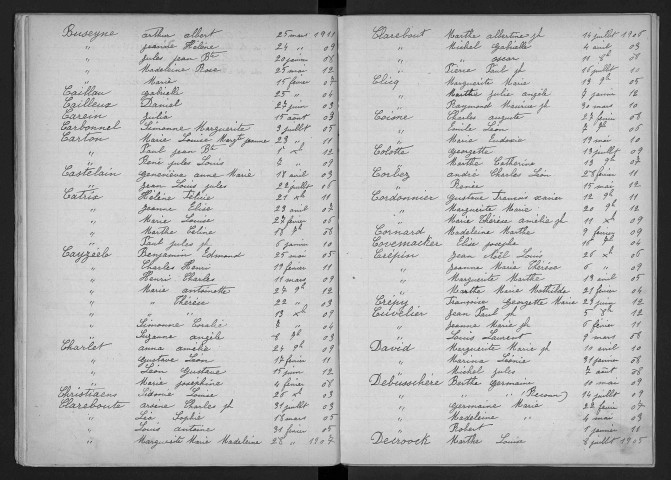 Buseyne arthur albert 25 mars 1911
" jeanne Hélène 24 " 09
" jules jean Bte 20 janvier 06
" Madeleine Rose 25 mai 12
" Marie 15 février 07
Caillau gabrielle 25 " 04
Cailleux Daniel 27 juin 03
Carein Julia 15 août 03
Carbonnel Simonne Marguerite 3 juillet 05
Carton Marie Louise Margte jeanne 23 " 11
" Paul jean Bte 12
" René jules Louis 7 " 09
Castelain geneviève anne Marie 18 avril 03
" jean Louis jules 22 juillet 06
Catrix Hélène 21 xbre 11
" jeanne Elise 23 avril 07
" Marie Louise 27 février 06
" Marthe Céline 08
" Paul jules jh 6 janvier 10
Cayzeele Benjamin Edmond 25 mai 05
" Charles Henri 19 février 11
" Henri Charles 11 mars 09
" Marie antoinette 27 9bre 12
" " Thérèse 22 " 03
" " " 13 xbre 09
" Simonne 7 " 04
" Suzanne angèle 8 03
Charlet anna amélie 24 9bre 09
" gustave Léon 17 février 11
" Léon gustave 15 juin 12
" Marie joséphine 4 février 06
Christiaens Sidonie Louise 26 xbre 03
Clareboute arsène Charles jh 31 juillet 03
" Léa Sophie 18 mars 05
" Louis antoine 05
" Marguerite Marie Madeleine 28 " 1907
Clarebout Marthe albertine jh 14 juillet 1906
" Michel gabrielle 4 août 03
" " oscar 11 08
" Pierre Paul jh 16 juillet 11
Elicq Marguerite Marie 13 06
" Marthe julie angèle 7 janvier 12
" Raymond Maurice jh 30 mars 10
Coisne Charles auguste 27 février 06
" Emile Léon 7 05
" Marie Ludovic 19 mai 10
Colotte georgette 13 juillet 09
" Marthe Catherine 13 9bre 07
Corbez andré Charles Léon 28 février 11
" Renée 15 mai 12
Cordonnier gustave François xavier 12 9bre 11
" Marguerite Marie 20 9bre 12
" Marie Thérèse amélie jh 11 xbre 09
Cornard Madeleine Marthe 9 février 09
Covemacker Elise josephe 04
Crépin jean Noël Louis 26 xbre 06
" jeanne Marie Thérèse 6 " 09
" Marguerite Marthe 13 avril 05
" Marthe Marie Mathilde 21 février 04
Crépy Françoise georgette Marie 23 juin 12
Cuvelier jean Paul jh 5 12
" jeanne Marie jh 6 février 11
" Louis Laurent 9 mars 08
David Marguerite Marie jh 11 avril 10
" Marina Léonie 08
" Michel jules 7 août 08
Debusschère Berthe germaine 10 mai 09
" " " 14 juillet 09
" germaine Marie 22 février 07
" Madeleine " 4 mai 03
" Robert 1 janvier 11
Decroock Marthe Louise 8 juillet 1905